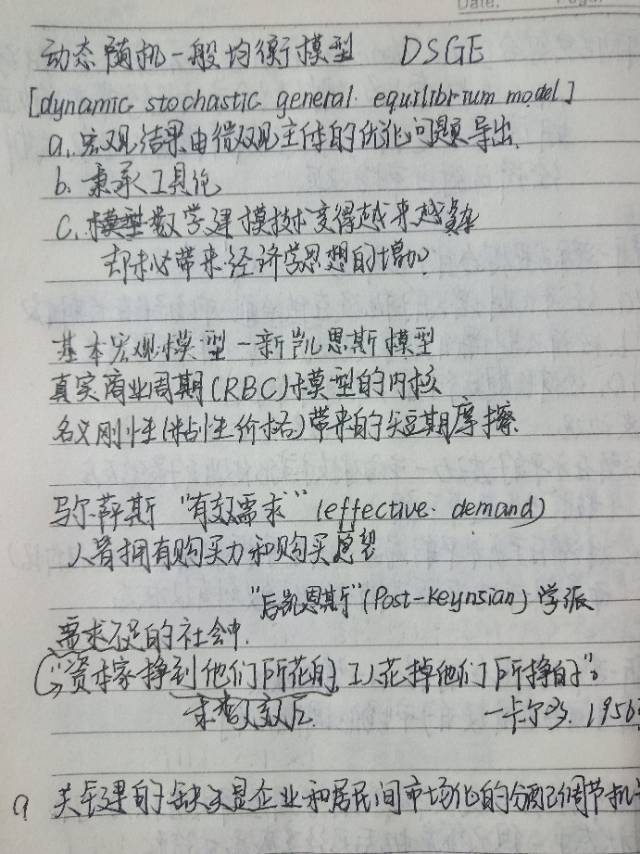 Date.
动态随机一般均衡模型 DSGE
[dynamic stochastic general equilibrium model]
a. 宏观结果由微观主体的优化问题导出.
b. 秉承工具论
c. 模型数学建模技术变得越来越复杂
却未必带来经济学思想的增加?
基本宏观模型-新凯恩斯模型
真实商业周期(RBC)模型的内核
名义刚性(粘性价格)带来的短期摩擦
马尔萨斯 "有效需求" (effective demand)
人皆拥有购买力和购买愿望
"后凯恩斯"(Post-Keynsian) 学派
需求不足的社会中.
("资本家挣到他们所花的, 工人花掉他们所挣的"。
-卡尔多. 1956
关键的缺失是企业和居民间市场化的分配调节机